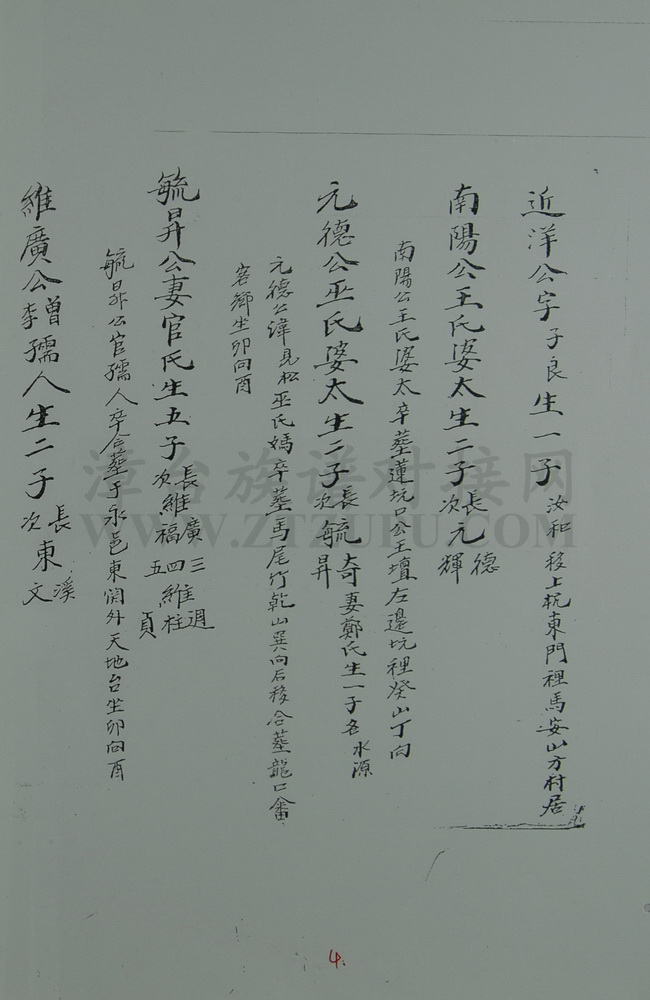 近洋公字子良生一子汝和移上杭東門裡馬安山方村居
南陽公王氏婆太生二子長元德次元輝
南陽公王氏婆太卒葬蓮坑口公王壇左邊坑裡癸山丁向
元德公巫氏婆太生二子長毓奇妻鄭氏生一子名水源次毓昇
元德公諱見松巫氏媽卒葬馬尾竹乾山巽向后移合葬龍口畲
客鄉坐卯向酉
毓昇公妻官氏生五子長維廣次維福三維週四維柱五維貢
毓昇公官孺人卒合葬于永邑東関外天地台坐卯向酉
維廣公曾李孺人生二子長東溪次東文
漳台族谱对接网
WWW.ZTZUPU.COM
4.